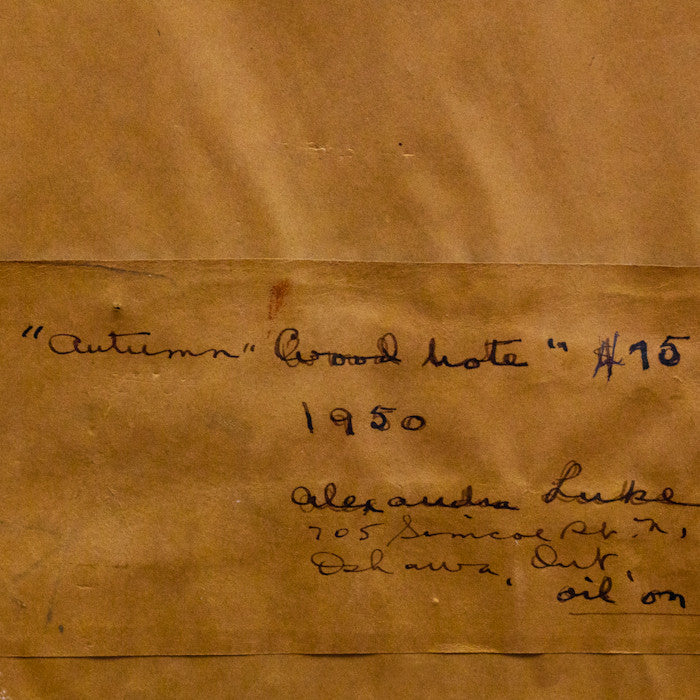 "Autumn" Wood Note" #75
1950
Alexandra Luke
705 Simcoe St. N,
Oshawa, Ont.
oil on